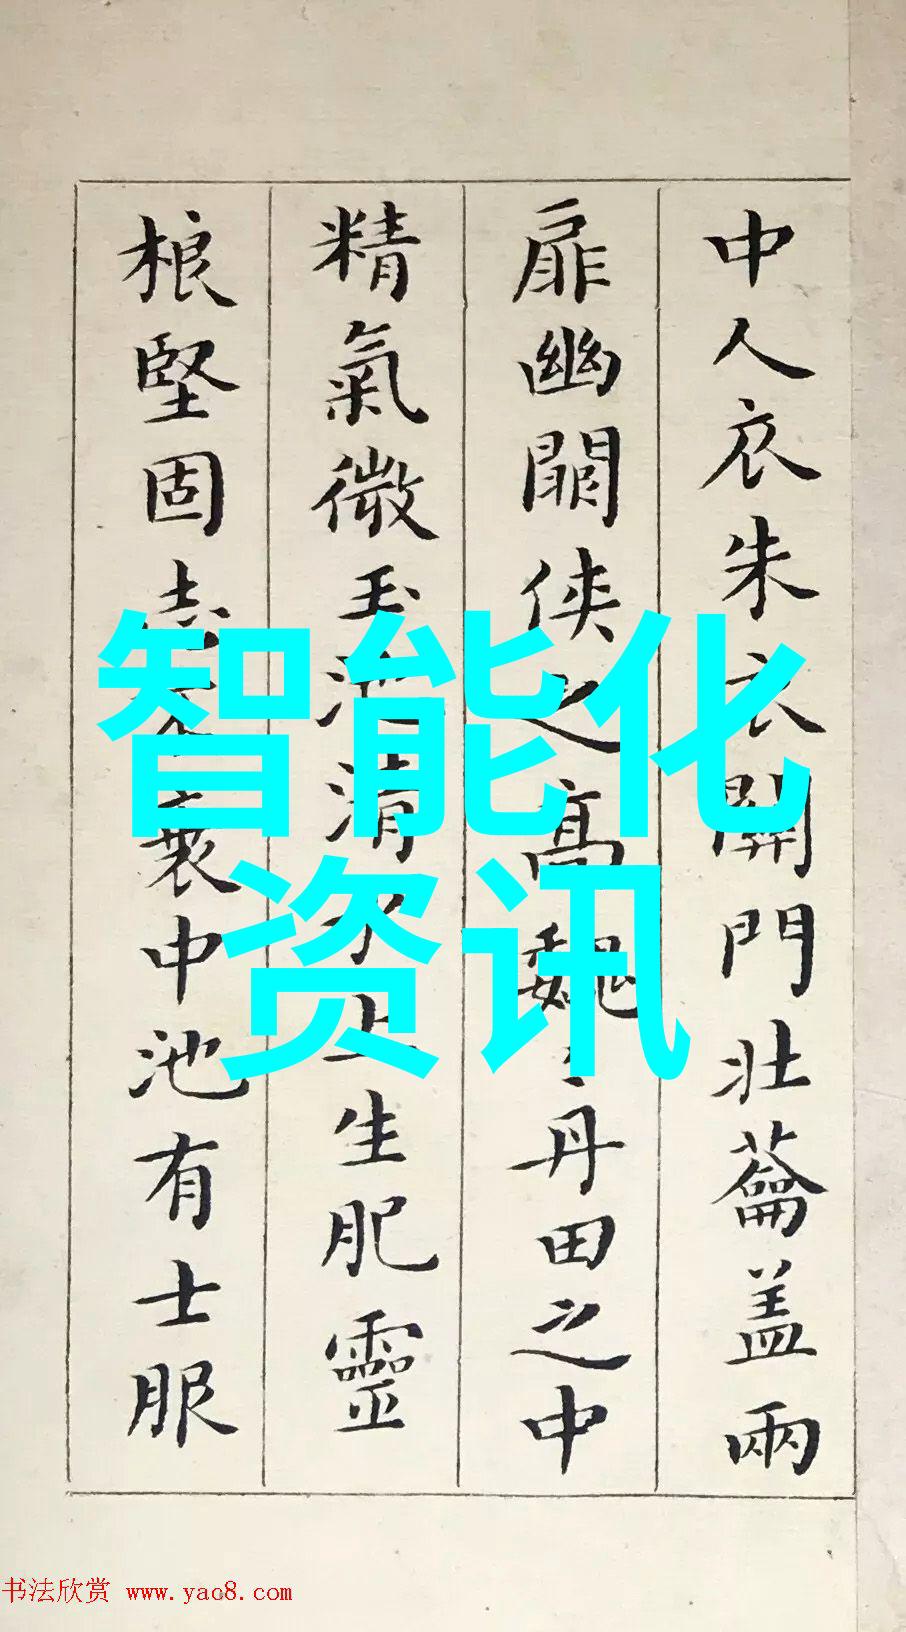 中人衣朱衣關門壯蘥盖兩
扉幽關侠之高魏〻丹田之中
精氣微玉池清水上生肥靈
根堅固志不衰中池有士服
智能化
资讯
书法欣赏 www.yac8.com